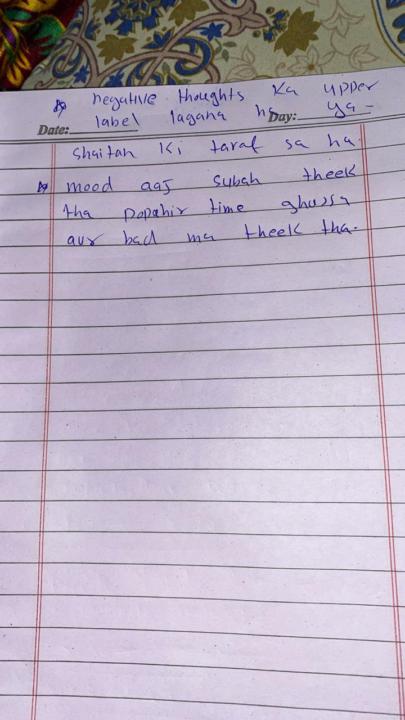 negative thoughts ka upper
label lagana ha ya -
Date: Day:
shaitan ki taraf sa ha
mood aaj subah theek
tha dopahir time ghussa
aur bad ma theek tha.